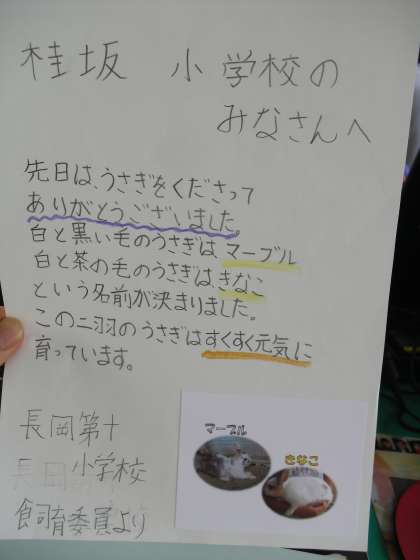 桂坂 小学校の
みなさんへ
先日は、うさぎをくださって
ありがとうございました。
白と黒い毛のうさぎはマーブル
白と茶の毛のうさぎはきなこ
という名前が決まりました。
この二羽のうさぎはすくすく元気に
育っています。
長岡第十
小学校
飼育委員より
マーブル
きなこ